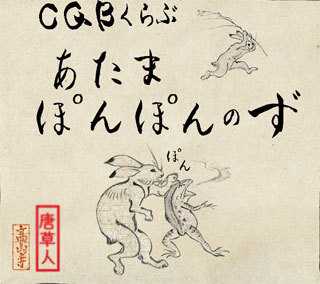 CQBくらぶ
あたま
ぽんぽんのず
ぽん
唐草人
高山寺